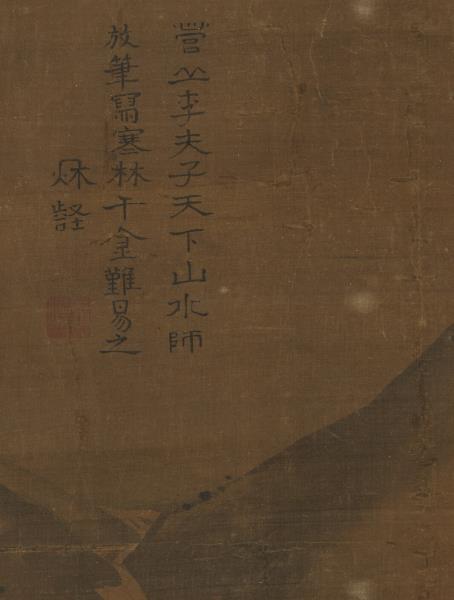 營丘李夫子天下山水師
放筆寫寒林千金難易之